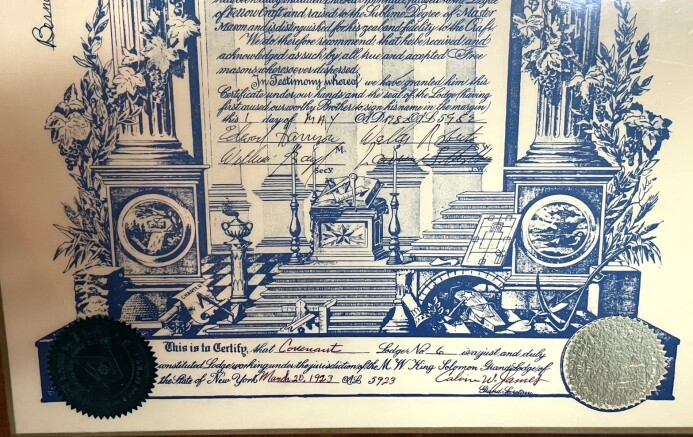 Besn
of Fellow Craft and raised to the Sublime Degree of Master
Mason and is distinguished for his zeal and fidelity to the Craft.
We do therefore recommend that he be received and
acknowledged as such by all true and accepted Free
masons wheresoever dispersed.
In Testimony whereof we have granted him this
Certificate under our hands and the seal of the Lodge (having
first caused our worthy Brother to sign his name in the margin)
this 1 day of MAY A.D. 1982 A.L. 5982
Harrison Wally
M. S.W.
Secy. J.W.
This is to Certify, that Covenant Lodge No 6 is a just and duly
constituted Lodge working under the jurisdiction of the M W King Solomon Grand Lodge of
the State of New York March 20, 1923 A.L. 5923 Calvin W. James
Grand Secretary